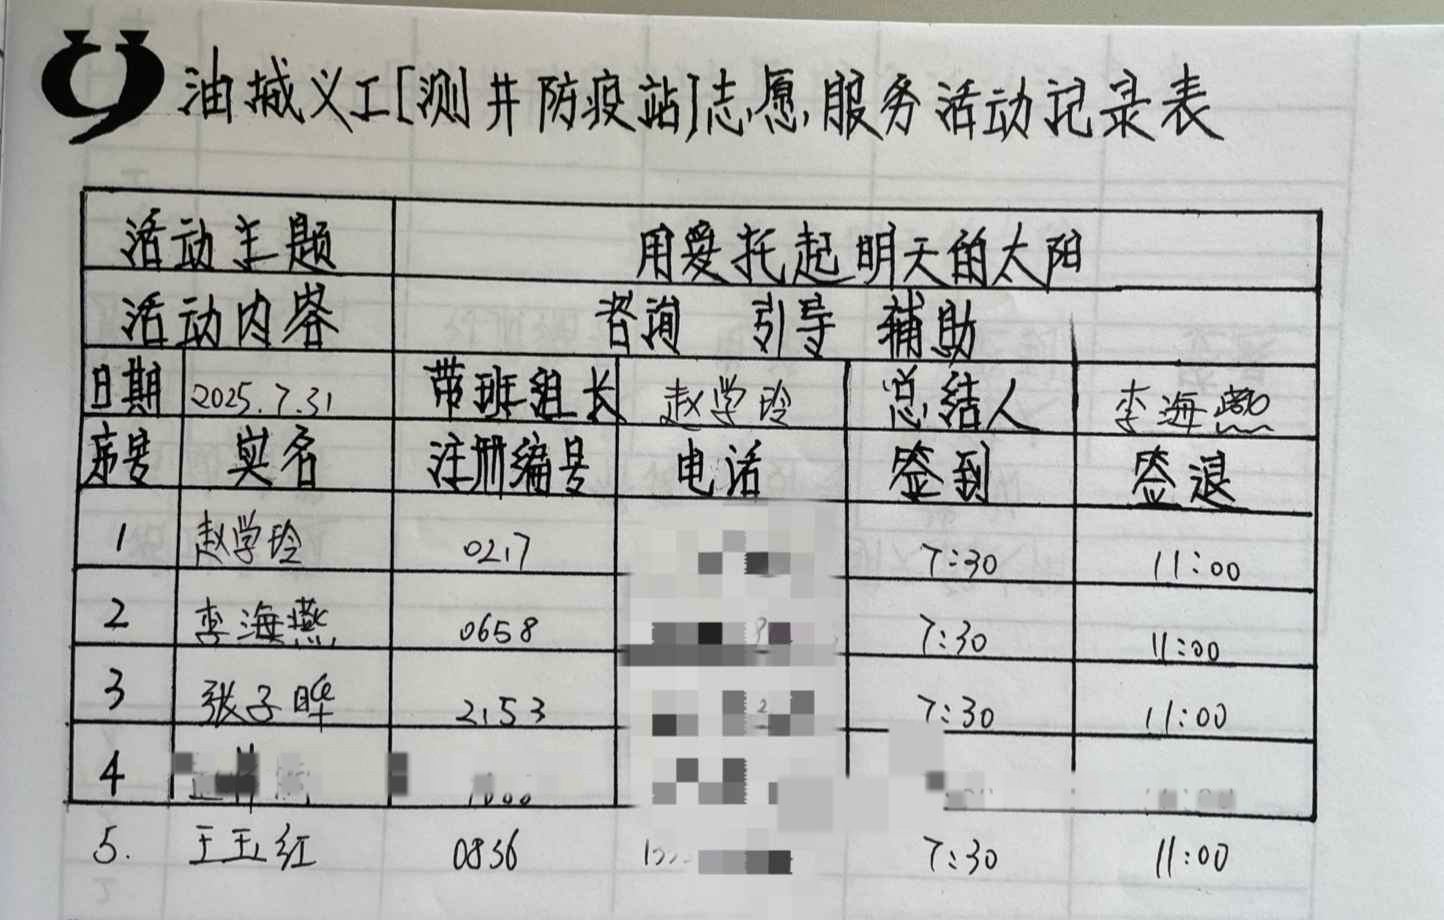 油城义工[测井防疫站]志愿服务活动记录表
活动主题 用爱托起明天的太阳
活动内容 咨询 引导 辅助
日期 2025.7.31 带班组长 赵学玲 总结人 李海燕
序号 实名 注册编号 电话 签到 签退
1 赵学玲 0217 7:30 11:00
2 李海燕 0658 7:30 11:00
3 张子晔 2153 7:30 11:00
4
5. 王玉红 0836 7:30 11:00